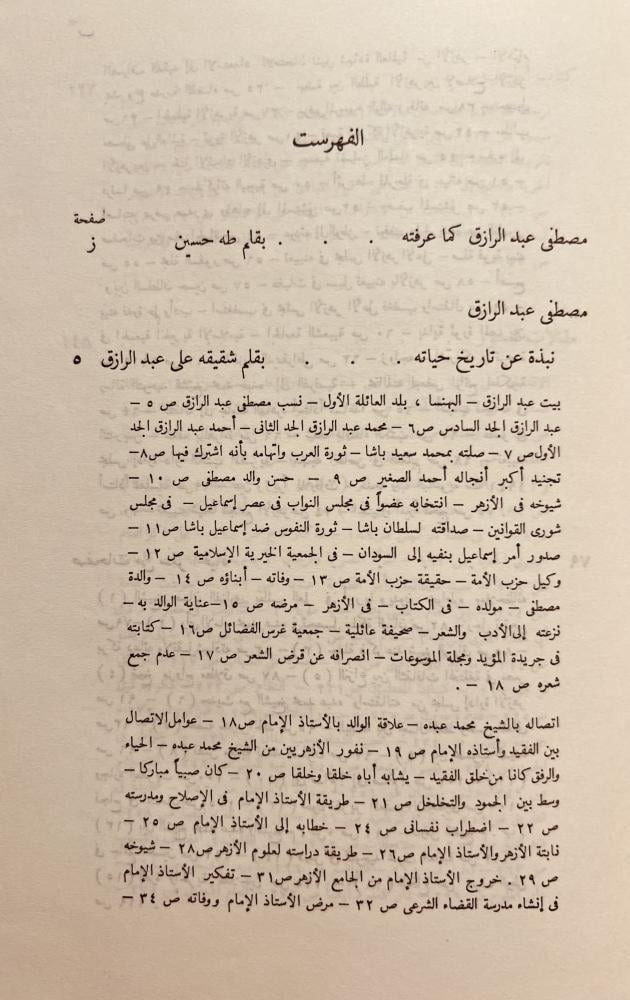 الفهرست
صفحة
مصطفى عبد الرازق كما عرفته . . . بقلم طه حسين ز
مصطفى عبد الرازق
نبذة عن تاريخ حياته . . . . بقلم شقيقه على عبد الرازق ٥
بيت عبد الرازق – البهنسا ، بلد العائلة الأول – نسب مصطفى عبد الرازق ص ٥ –
عبد الرازق الجد السادس ص٦ – محمد عبد الرازق الجد الثانى – أحمد عبد الرازق الجد
الأول ص ٧ – صلته بمحمد سعيد باشا – ثورة العرب واتهامه بأنه اشترك فيها ص٨ –
تجنيد أكبر أنجاله أحمد الصغير ص ٩ – حسن والد مصطفى ص ١٠ –
شيوخه فى الأزهر – انتخابه عضواً فى مجلس النواب فى عصر إسماعيل – فى مجلس
شورى القوانين – صداقته لسلطان باشا – ثورة النفوس ضد إسماعيل باشا ص ١١ –
صدور أمر إسماعيل بنفيه إلى السودان – فى الجمعية الخيرية الإسلامية ص ١٢ –
وكيل حزب الأمة – حقيقة حزب الأمة ص ١٣ – وفاته – أبناؤه ص ١٤ – والدة
مصطفى – مولده – فى الكتاب – فى الأزهر – مرضه ص ١٥ – عناية الوالد به –
نزعته إلى الأدب والشعر – صحيفة عائلية – جمعية غرس الفضائل ص١٦ – كتابته
فى جريدة المؤيد ومجلة الموسوعات – انصرافه عن قرض الشعر ص ١٧ – عدم جمع
شعره ص ١٨ – .
اتصاله بالشيخ محمد عبده – علاقة الوالد بالأستاذ الإمام ص١٨ – عوامل الاتصال
بين الفقيد وأستاذه الإمام ص ١٩ – نفور الأزهريين من الشيخ محمد عبده – الحياء
والرفق كانا من خلق الفقيد – يشابه أباه خلقا وخلقا ص ٢٠ – كان صبياً مباركا –
وسط بين الجمود والتخلخل ص ٢١ – طريقة الأستاذ الإمام فى الإصلاح ومدرسته
ص ٢٢ – اضطراب نفسانى ص ٢٤ – خطابه إلى الأستاذ الإمام ص ٢٥ –
نابتة الأزهر والأستاذ الإمام ص٢٦ – طريقة دراسته لعلوم الأزهر ص٢٨ – شيوخه
ص ٢٩ . خروج الأستاذ الإمام من الجامع الأزهر ص ٣١ – تفكير الأستاذ الإمام
فى إنشاء مدرسة القضاء الشرعى ص ٣٢ – مرض الأستاذ الإمام ووفاته ص ٣٤ –